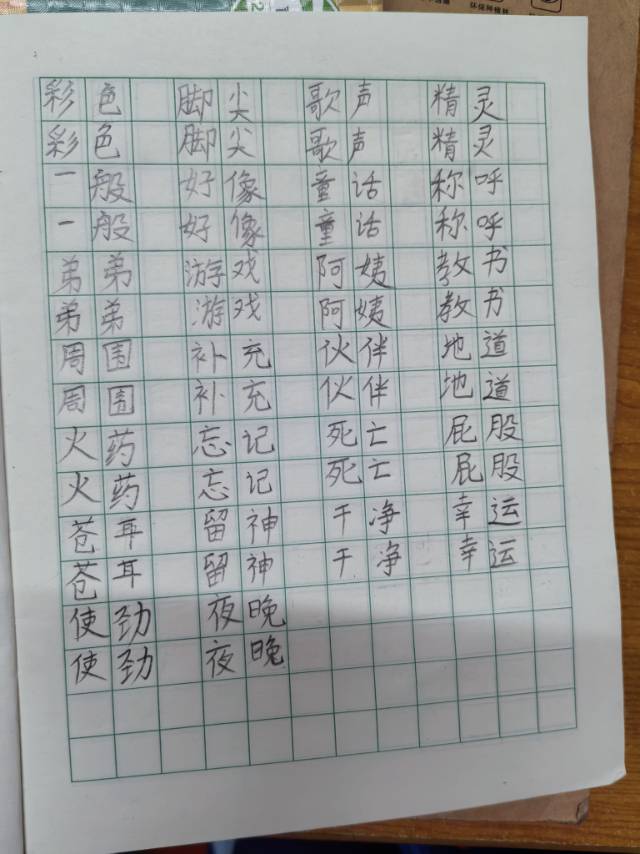 彩色 脚尖 歌声 精灵
彩色 脚尖 歌声 精灵
一般 好像 童话 称呼
一般 好像 童话 称呼
弟弟 游戏 阿姨 教书
弟弟 游戏 阿姨 教书
周围 补充 伙伴 地道
周围 补充 伙伴 地道
火药 忘记 死亡 屁股
火药 忘记 死亡 屁股
苍耳 留神 干净 幸运
苍耳 留神 干净 幸运
使劲 夜晚
使劲 夜晚